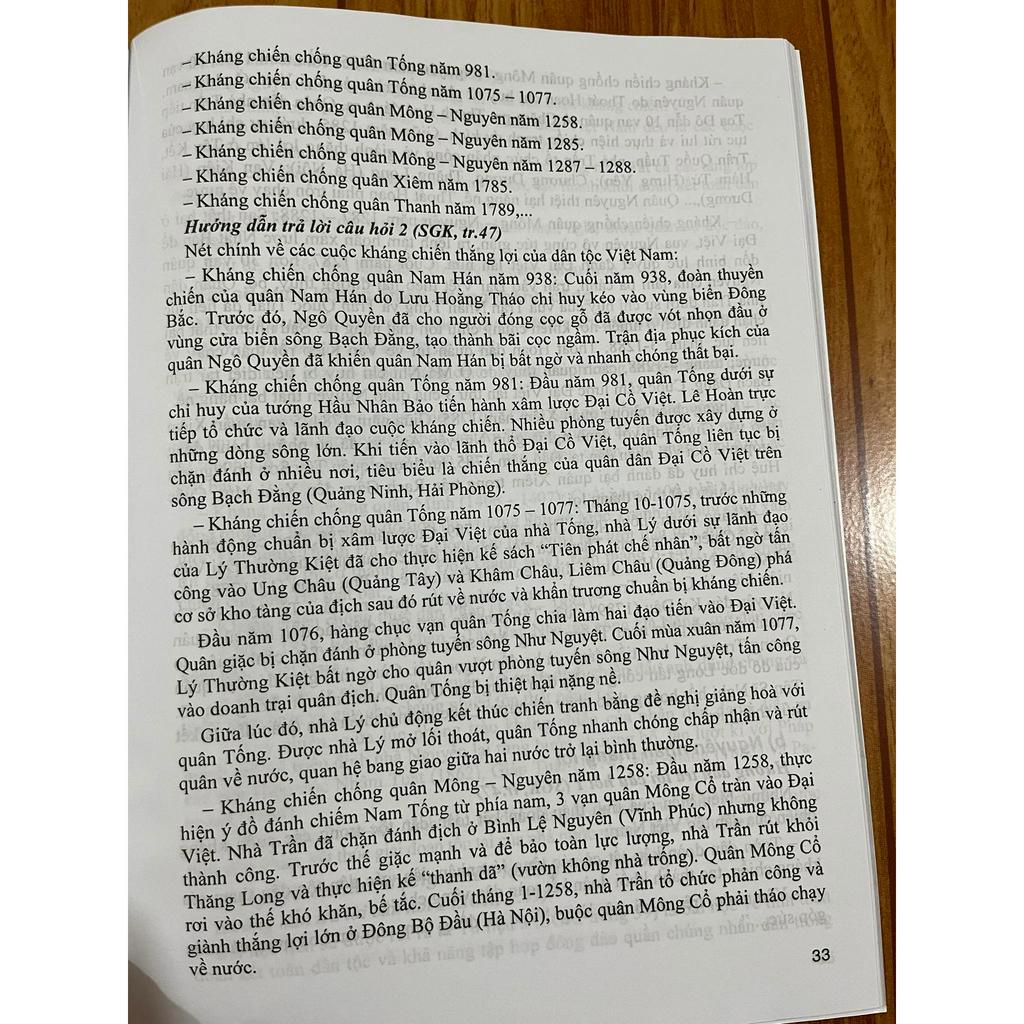 – Kháng chiến chống quân Tống năm 981.
– Kháng chiến chống quân Tống năm 1075 – 1077.
– Kháng chiến chống quân Mông – Nguyên năm 1258.
– Kháng chiến chống quân Mông – Nguyên năm 1285.
– Kháng chiến chống quân Mông – Nguyên năm 1287 – 1288.
– Kháng chiến chống quân Xiêm năm 1785.
– Kháng chiến chống quân Thanh năm 1789,...
Hướng dẫn trả lời câu hỏi 2 (SGK, tr.47)
Nét chính về các cuộc kháng chiến thắng lợi của dân tộc Việt Nam:
– Kháng chiến chống quân Nam Hán năm 938: Cuối năm 938, đoàn thuyền
chiến của quân Nam Hán do Lưu Hoằng Tháo chỉ huy kéo vào vùng biển Đông
Bắc. Trước đó, Ngô Quyền đã cho người đóng cọc gỗ đã được vót nhọn đầu ở
vùng cửa biển sông Bạch Đằng, tạo thành bãi cọc ngầm. Trận địa phục kích của
quân Ngô Quyền đã khiến quân Nam Hán bị bất ngờ và nhanh chóng thất bại.
– Kháng chiến chống quân Tống năm 981: Đầu năm 981, quân Tống dưới sự
chỉ huy của tướng Hầu Nhân Bảo tiến hành xâm lược Đại Cồ Việt. Lê Hoàn trực
tiếp tổ chức và lãnh đạo cuộc kháng chiến. Nhiều phòng tuyến được xây dựng ở
những dòng sông lớn. Khi tiến vào lãnh thổ Đại Cồ Việt, quân Tống liên tục bị
chặn đánh ở nhiều nơi, tiêu biểu là chiến thắng của quân dân Đại Cồ Việt trên
sông Bạch Đằng (Quảng Ninh, Hải Phòng).
– Kháng chiến chống quân Tống năm 1075 – 1077: Tháng 10-1075, trước những
hành động chuẩn bị xâm lược Đại Việt của nhà Tống, nhà Lý dưới sự lãnh đạo
của Lý Thường Kiệt đã cho thực hiện kế sách “Tiên phát chế nhân”, bất ngờ tấn
công vào Ung Châu (Quảng Tây) và Khâm Châu, Liêm Châu (Quảng Đông) phá
cơ sở kho tàng của địch sau đó rút về nước và khẩn trương chuẩn bị kháng chiến.
Đầu năm 1076, hàng chục vạn quân Tống chia làm hai đạo tiến vào Đại Việt.
Quân giặc bị chặn đánh ở phòng tuyến sông Như Nguyệt. Cuối mùa xuân năm 1077,
Lý Thường Kiệt bất ngờ cho quân vượt phòng tuyến sông Như Nguyệt, tấn công
vào doanh trại quân địch. Quân Tống bị thiệt hại nặng nề.
Giữa lúc đó, nhà Lý chủ động kết thúc chiến tranh bằng đề nghị giảng hoà với
quân Tống. Được nhà Lý mở lối thoát, quân Tống nhanh chóng chấp nhận và rút
quân về nước, quan hệ bang giao giữa hai nước trở lại bình thường.
– Kháng chiến chống quân Mông – Nguyên năm 1258: Đầu năm 1258, thực
hiện ý đồ đánh chiếm Nam Tống từ phía nam, 3 vạn quân Mông Cổ tràn vào Đại
Việt. Nhà Trần đã chặn đánh địch ở Bình Lệ Nguyên (Vĩnh Phúc) nhưng không
thành công. Trước thế giặc mạnh và để bảo toàn lực lượng, nhà Trần rút khỏi
Thăng Long và thực hiện kế “thanh dã” (vườn không nhà trống). Quân Mông Cổ
rơi vào thế khó khăn, bế tắc. Cuối tháng 1-1258, nhà Trần tổ chức phản công và
giành thắng lợi lớn ở Đông Bộ Đầu (Hà Nội), buộc quân Mông Cổ phải tháo chạy
về nước.
33